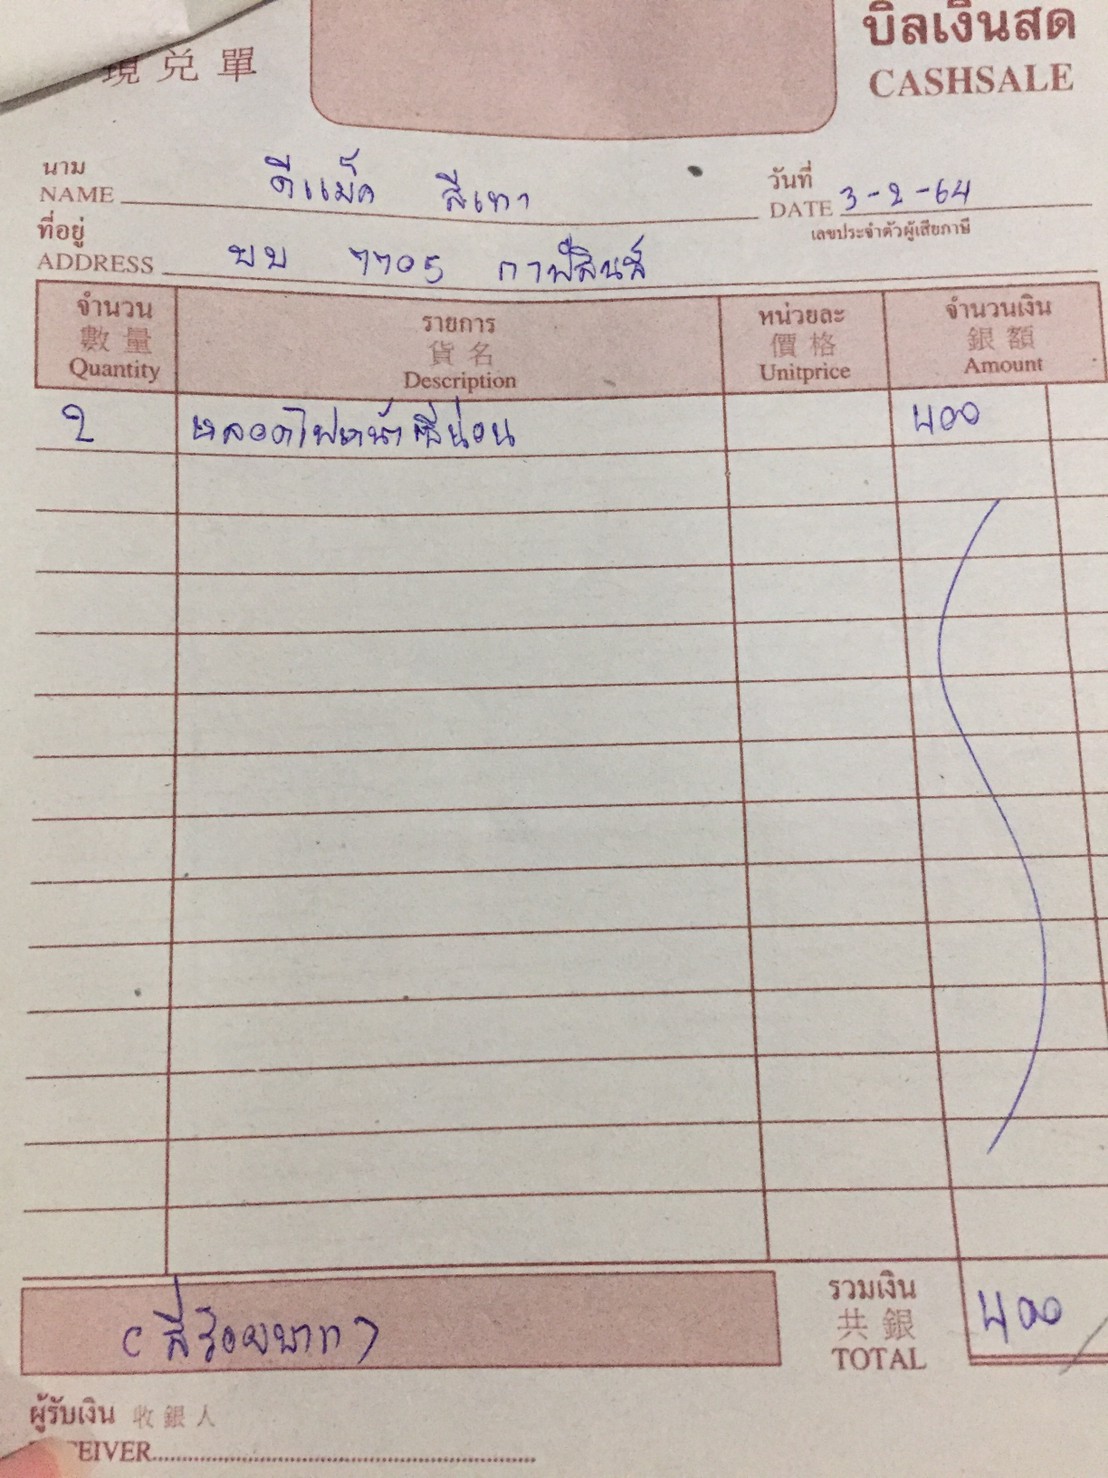 現兑單
บิลเงินสด
CASHSALE
นาม
NAME ดีแม็ค สีเทา
วันที่
DATE 3-2-64
เลขประจำตัวผู้เสียภาษี
ที่อยู่
ADDRESS บบ 7705 กาฬสินธุ์
จำนวน 數量 Quantity
รายการ 貨名 Description
หน่วยละ 價格 Unitprice
จำนวนเงิน 銀額 Amount
2 หลอดไฟหน้า 400
(สี่ร้อยบาท)
รวมเงิน
共銀
TOTAL 400
ผู้รับเงิน 收銀人
EIVER